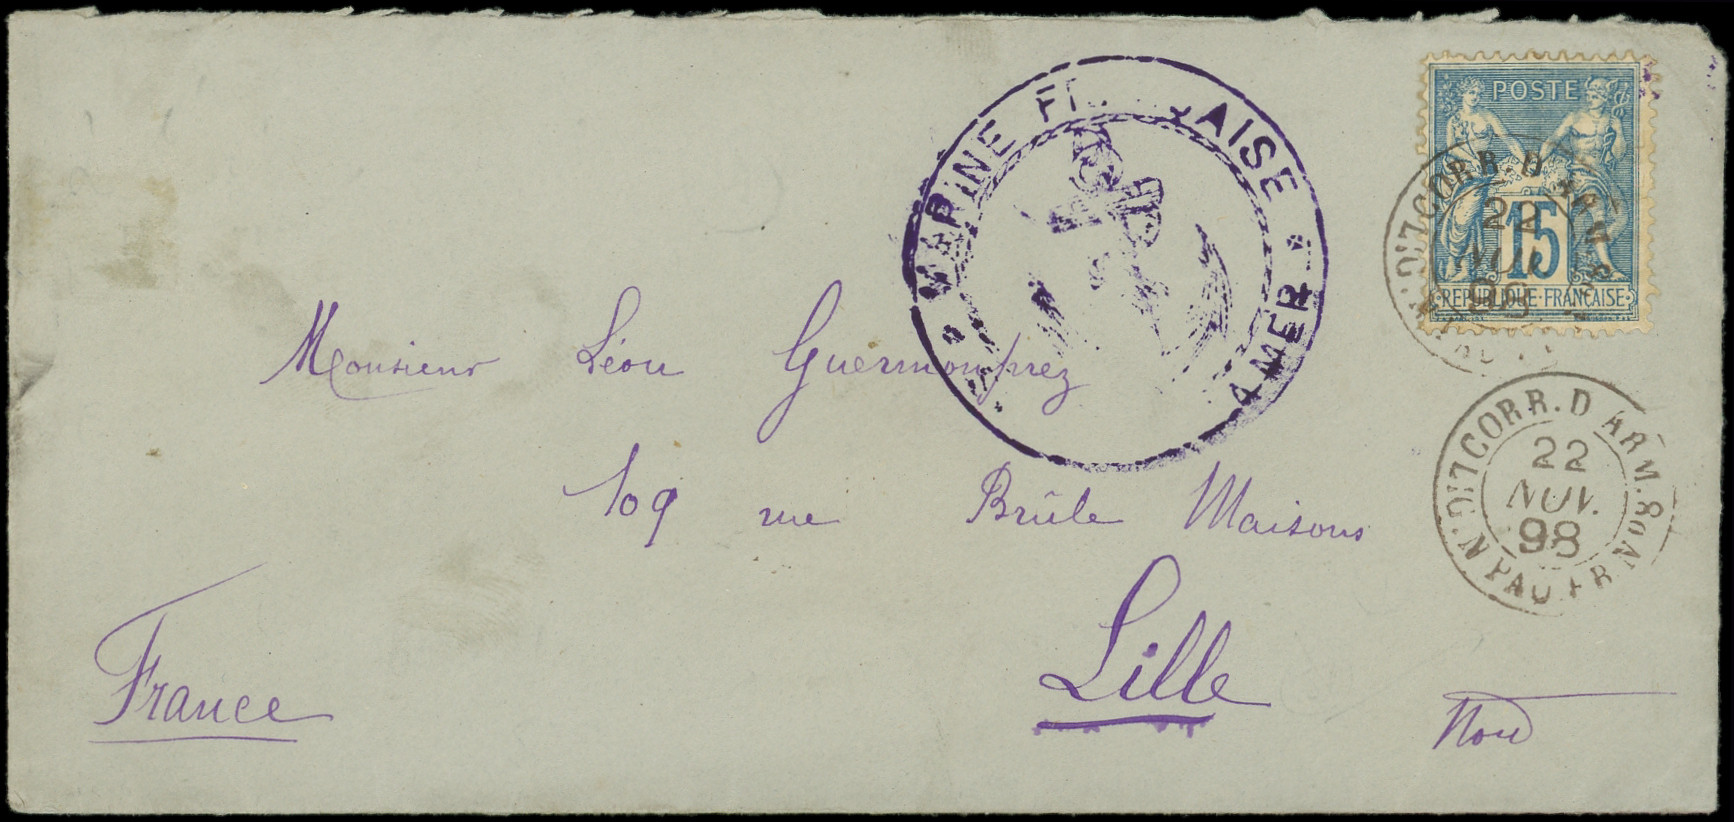 POSTE
15
REPUBLIQUE FRANÇAISE
CORR. D ARM.
22
NOV.
98
MARINE FR  ÇAISE
MER
Monsieur Léon Guermonprez
109 rue Brûle Maisons
Lille
Nord
France
CORR. D ARM. 8
22
NOV.
98